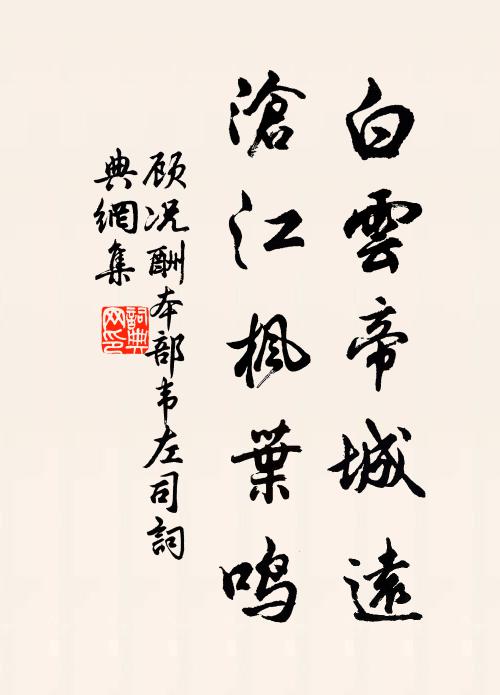 白雲帝城遠
滄江楓葉鳴
顾况酬本部韦左司詞
典網集
詞典網印